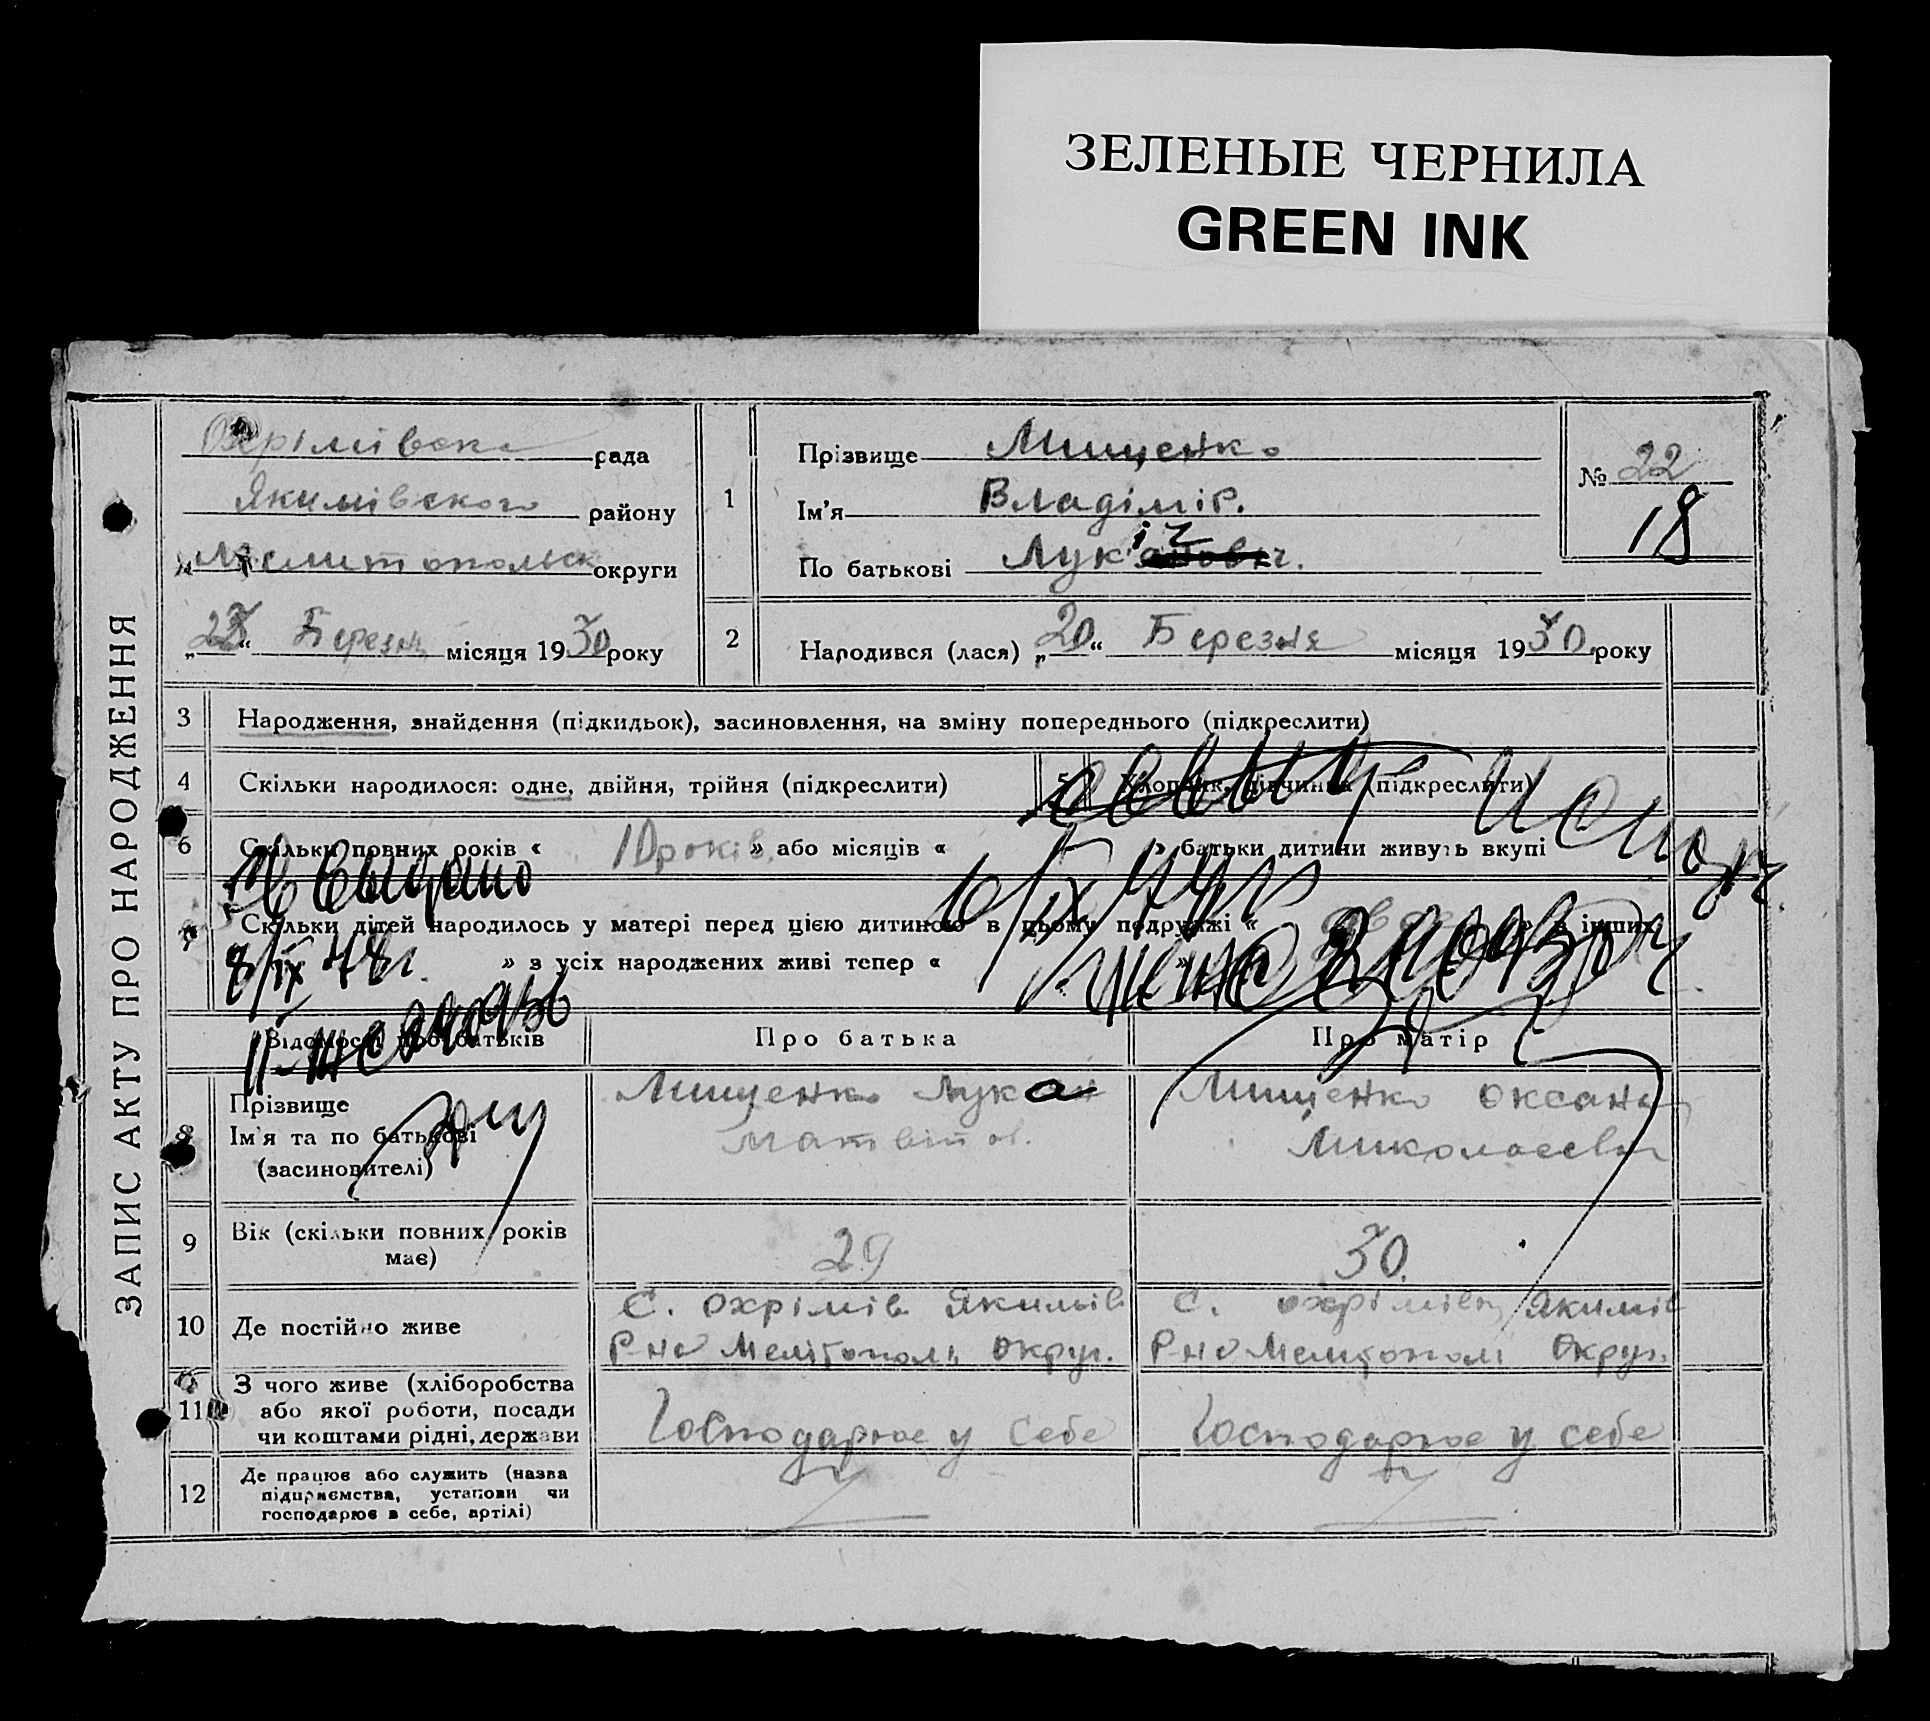 ЗЕЛЕНЫЕ ЧЕРНИЛА
GREEN INK
ЗАПИС АКТУ ПРО НАРОДЖЕННЯ
Охрімівска рада
Якимівского району
Мелитопольск округи
„23“ Березня місяця 1930 року
1
Прізвище Мищенко
Ім'я Владімір.
По батькові Лукіч
№ 22
18
2 Народився (лася) „20“ Березня місяця 1930 року
3 Народження, знайдення (підкидьок), засиновлення, на зміну попереднього (підкреслити)
4 Скільки народилося: одне, двійня, трійня (підкреслити)
5 Хлопчик, дівчинка (підкреслити)
6 Скільки повних років « 10 років » або місяців « » батьки дитини живуть вкупі
Св Выдано
7 Скільки дітей народилось у матері перед цією дитиною в цьому подружжі « » в інших
8/IX 48 г.
» з усіх народжених живі тепер « »
Відомості про батьків
Про батька
Про матір
8 Прізвище
Ім'я та по батькові
(засиновителі)
Мищенко Лука
Матвійов.
Мищенко Оксана
Миколаєвн
9 Вік (скільки повних років має)
29
30.
10 Де постійно живе
С. Охрімів Якимів
Р-на Меліто­поль округ.
С. Охрімівц Якимів
Р-на Мелитополі Округ.
11 З чого живе (хліборобства
або якої роботи, посади
чи коштами рідні, держави
Господарює у себе
Господарює у себе
12 Де працює або служить (назва
підприємства, установи чи
господарює в себе, артілі)